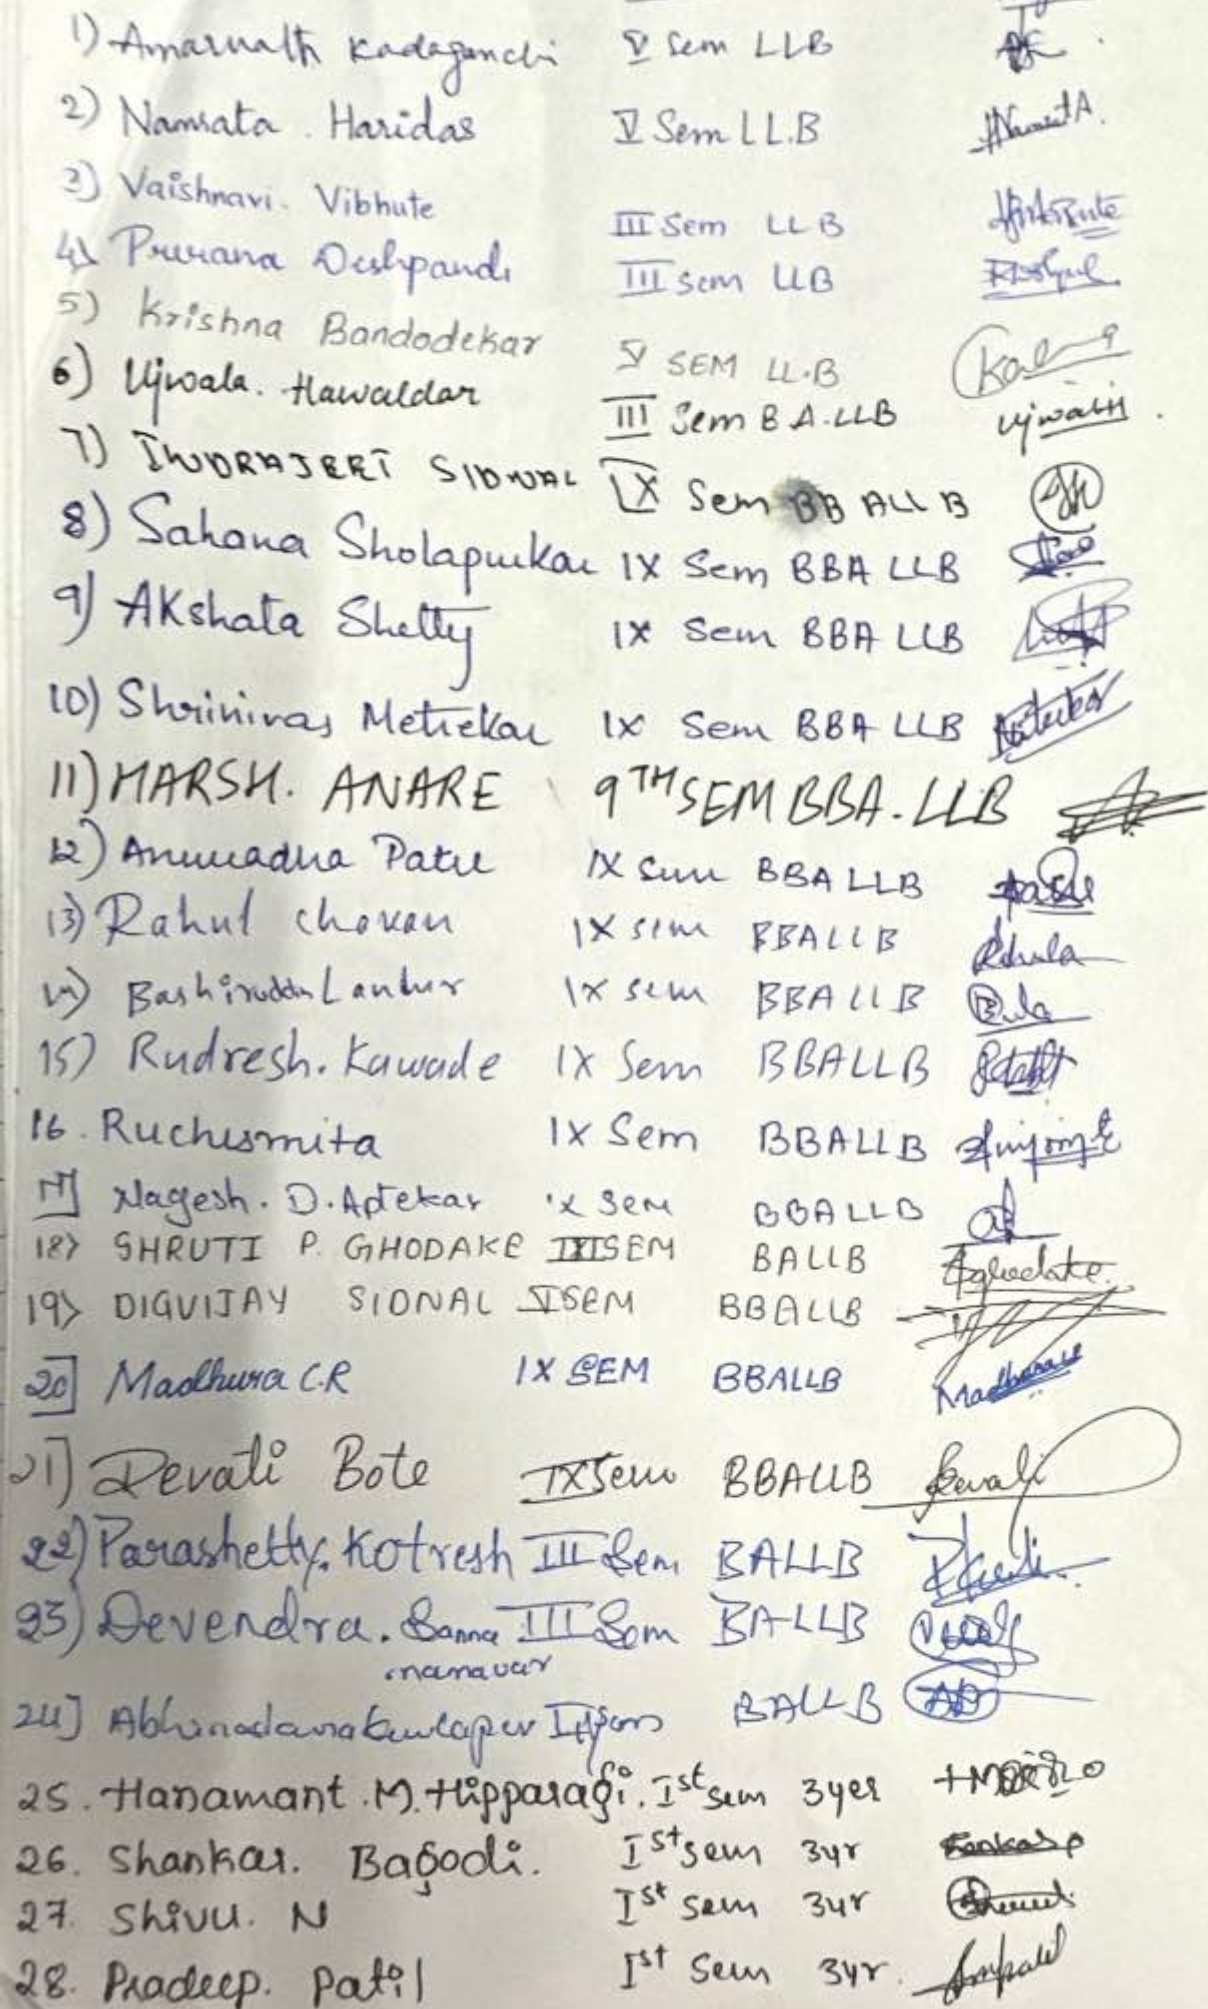 1) Amarnath Kadaganchi V Sem LLB
2) Namrata. Haridas V Sem LL.B
3) Vaishnavi. Vibhute III Sem LLB
4) Prerana Deshpande III sem LLB
5) Krishna Bandodekar V SEM LL.B
6) Ujwala. Hawaldar III Sem B A.LLB Ujwala
7) INDRAJEET SIDNAL IX Sem BB ALL B
8) Sahana Sholapurkar IX Sem BBA LLB
9) AKshata Shetty IX Sem BBA LLB
10) Shrinivas Metrekar IX Sem BBA LLB
11) HARSH. ANARE 9TH SEM BBA.LLB
12) Anuradha Patil IX Sem BBA LLB
13) Rahul Chovan IX sem BBALLB
14) Bashiruddin Landur IX sem BBA LLB
15) Rudresh. Kawade IX Sem BBALLB
16. Ruchismita IX Sem BBALLB
17] Nagesh. D. Aptekar IX Sem BBALLB
18> SHRUTI P. GHODAKE III SEM BALLB Ghodake
19> DIGVIJAY SIDNAL V SEM BBALLB
20] Madhura C.R IX SEM BBALLB Madhura
21] Revati Bote IX Sem BBALLB Revati
22) Parashetty. Kotresh III Sem BALLB
23) Devendra. Banna III Sem BALLB
manavar
24] BALLB
25. Hanamant. M. Hipparagi. Ist sem 3yer
26. Shankar. Bagodi. Ist sem 3yr
27. Shivu. N Ist Sem 3yr
28. Pradeep. Patil Ist Sem 3yr.